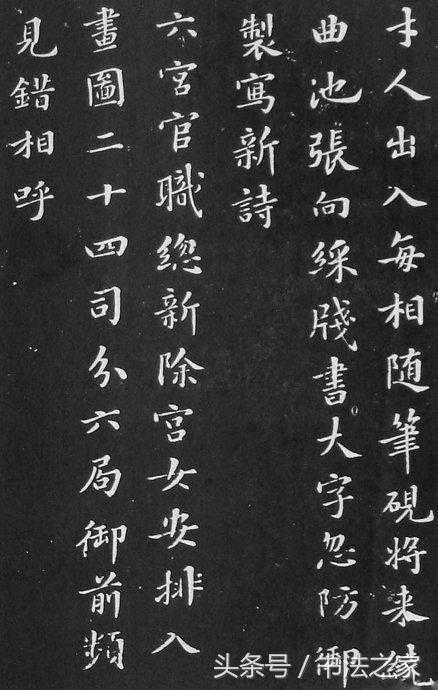 才人出入每相随筆硯将来繞
曲池張向綵牋書大字忽防御
製寫新詩
六宮官職總新除宮女安排入
畫圖二十四司分六局御前頻
見錯相呼
头条号/书法之家